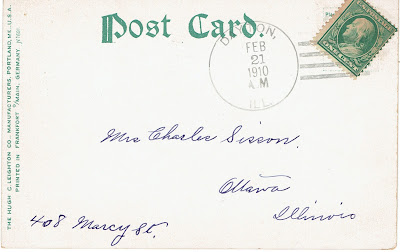 Post Card.
DIXON,
FEB
21
1910
A.M
ILL.
ONE CENT
Mrs Charles Sisson.
Ottawa
Illinois
408 Marcy St.
THE HUGH C. LEIGHTON CO., MANUFACTURERS, PORTLAND, ME., U.S.A.
PRINTED IN FRANKFORT o/MAIN, GERMANY